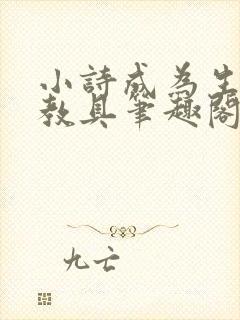 小詩成為生
教具筆趣閣
九亡